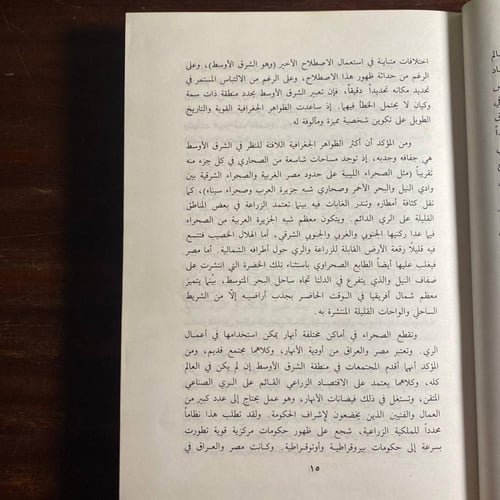 اختلافات متباينة في استعمال الاصطلاح الأخير (وهو الشرق الأوسط)، وعلى
الرغم من حداثة ظهور هذا الاصطلاح، وعلى الرغم من الالتباس المستمر في
تحديد مكانه تحديداً دقيقاً، فإن تعبير الشرق الأوسط يحدد منطقة ذات سمة
وكيان لا يحتمل الخطأ فيهما. إذ ساعدت الظواهر الجغرافية القوية والتاريخ
الطويل على تكوين شخصية مميزة ومألوفة له.
ومن المؤكد أن أكثر الظواهر الجغرافية اللافتة للنظر في الشرق الأوسط
هي جفافه وجدبه، إذ توجد مساحات شاسعة من الصحاري في كل جزء منه
تقريباً (مثل الصحراء الليبية على حدود مصر الغربية والصحراء الشرقية بين
وادي النيل والبحر الأحمر وصحاري شبه جزيرة العرب وصحراء سيناء)، كما
تقل كثافة أمطاره وتندر الغابات فيه بينما تعتمد الزراعة في بعض المناطق
القليلة على الري الدائم. ويتكون معظم شبه الجزيرة العربية من الصحراء
فيما عدا ركنيها الجنوبي والغربي والجنوبي الشرقي. أما الهلال الخصيب فتتسع
فيه قليلاً رقعة الأرض القابلة للزراعة والري حول أطرافه الشمالية. أما مصر
فيغلب عليها أيضاً الطابع الصحراوي باستثناء تلك الخضرة التي انتشرت على
ضفاف النيل والذي يتفرع في الدلتا تجاه ساحل البحر المتوسط. بينما يتميز
معظم شمال أفريقيا في الوقت الحاضر بجدب أراضيه إلّا من الشريط
الساحلي والواحات القليلة المنتشرة به.
وتقطع الصحراء في أماكن مختلفة أنهار يمكن استخدامها في أعمال
الري. وتعتبر مصر والعراق من أودية الأنهار، وكلاهما مجتمع قديم، ومن
المؤكد أنهما أقدم المجتمعات في منطقة الشرق الأوسط إن لم يكن في العالم
كله، وكلاهما يعتمد على الاقتصاد الزراعي القائم على الري الصناعي
المتقن، وتستغل في ذلك فيضانات الأنهار، وهو عمل يحتاج إلى عدد كبير من
العمال والفنيين الذين يخضعون لإشراف الحكومة. ولقد تطلب هذا نظاماً
محدداً للملكية الزراعية، شجع على ظهور حكومات مركزية قوية تطورت
بسرعة إلى حكومات بيروقراطية وأوتوقراطية. وكانت مصر والعراق في
١٥